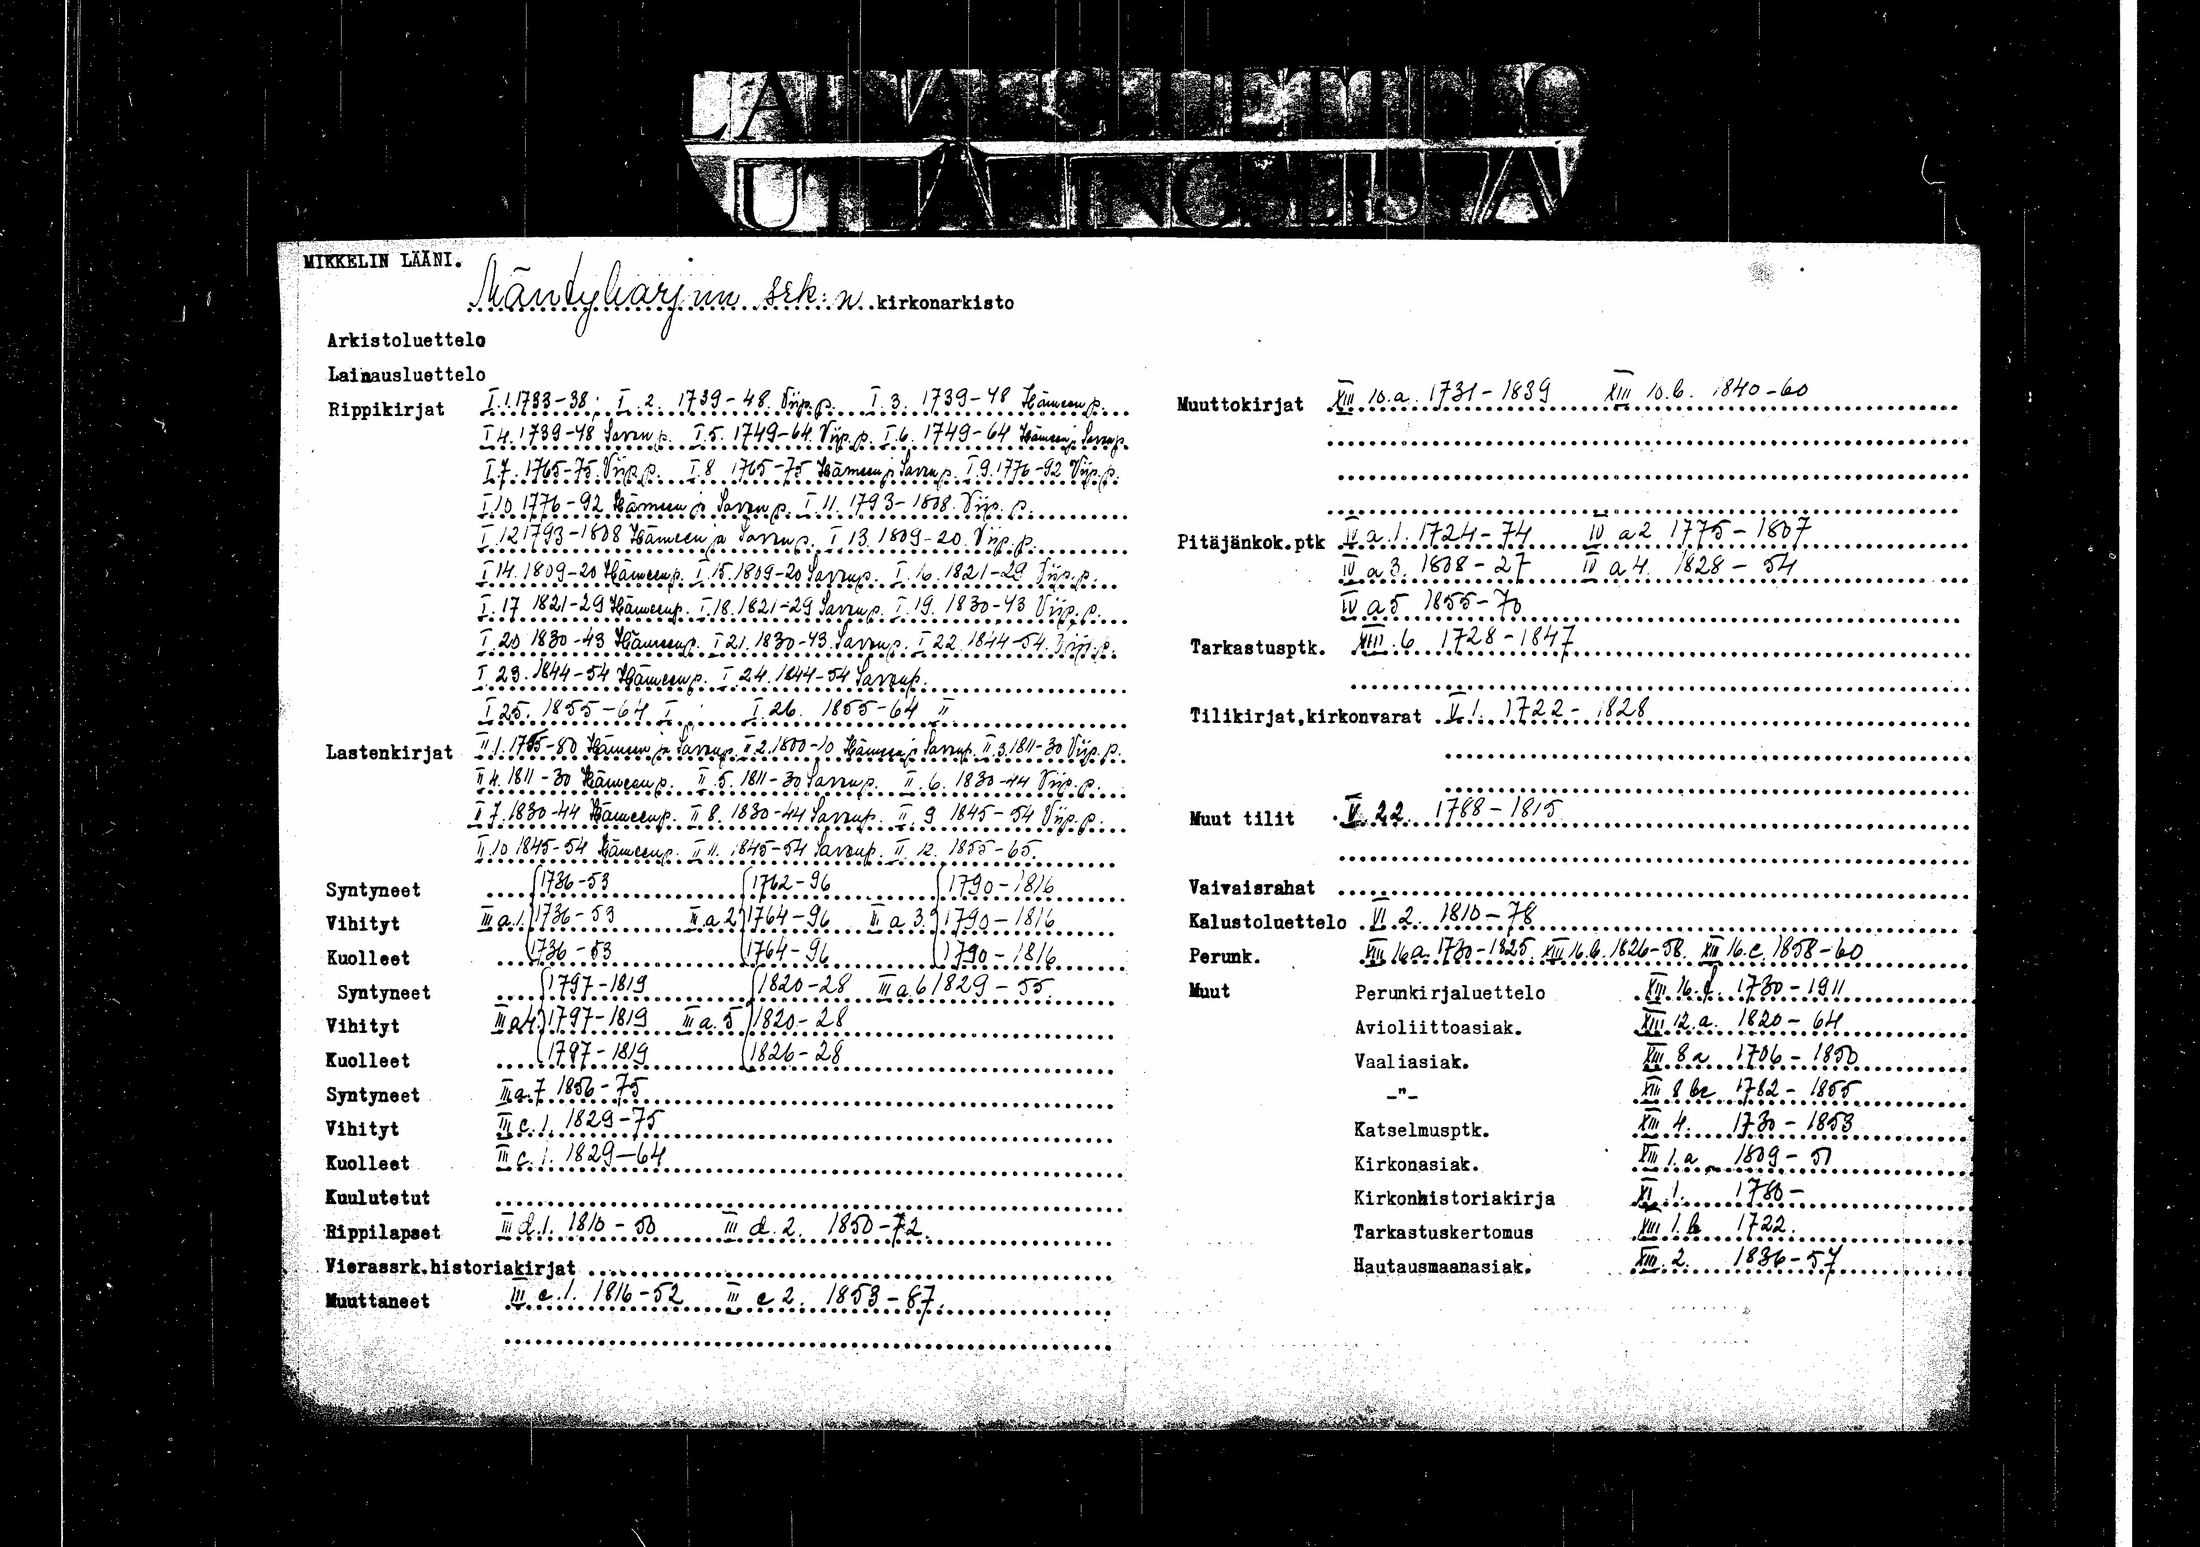 LAINAUSLUETTELO
UTLÅNINGSLISTA
MIKKELIN LÄÄNI.
Mäntyharjun srk:n kirkonarkisto
Arkistoluettelo
Lainausluettelo
Rippikirjat I.1.1733-38; I.2. 1739-48. Viip.p. I.3. 1739-48 Hämeen p.
I 4. 1739-48 Savon p. I.5. 1749-64. Viip.p. I.6. 1749-64 Hämeen ja Savon p.
I 7. 1765-75. Viip.p. I.8 1765-75 Hämeen ja Savon p. I.9. 1776-92 Viip.p.
I.10 1776-92 Hämeen ja Savon p. I.11. 1793-1808. Viip. p.
I 12 1793-1808 Hämeen ja Savon p. I 13. 1809-20. Viip. p.
I 14. 1809-20 Hämeen p. I.15. 1809-20 Savon p. I.16. 1821-29 Viip.p.
I.17 1821-29 Hämeen p. I.18. 1821-29 Savon p. I.19. 1830-43 Viip.p.
I.20 1830-43 Hämeen p. I 21. 1830-43. Savon p. I 22. 1844-54. Viip.p.
I 23. 1844-54 Hämeen p. I 24. 1844-54 Savon p.
I 25. 1855-64 I I 26. 1855-64 II
Lastenkirjat II 1. 80 Hämeen ja Savon p. II 2. 1800-10 Hämeen ja Savon p. II.3. 1811-30 Viip.p.
II 4. 1811-30 Hämeen p. II.5. 1811-30 Savon p. II.6. 1830-44 Viip.p.
II 7. 1830-44 Hämeen p. II 8. 1830-44 Savon p. II.9 1845-54 Viip.p.
II.10 1845-54 Hämeen p. II 11. 1845-54 Savon p. II.12. 1855-65.
Syntyneet 1736-53 1762-96 1790-1816
Vihityt III a.1. 1736-53 III a 2 1764-96 III a 3. 1790-1816
Kuolleet 1736-53 1764-96 1790-1816
Syntyneet 1797-1819 1820-28 III a.6 1829-55.
Vihityt III a 4 1797-1819 III a.5 1820-28
Kuolleet 1797-1819 1826-28
Syntyneet III a.7 1856-75
Vihityt III c.1. 1829-75
Kuolleet III c.1. 1829-64
Kuulutetut
Rippilapset III d.1. 1810-50 III d.2. 1850-72.
Vierassrk.historiakirjat
Muuttaneet III e.1. 1816-52 III e 2. 1853-87.
Muuttokirjat XIII 10.a. 1731-1839 XIII 10.b. 1840-60
Pitäjänkok.ptk IV a.1. 1724-74 IV a 2 1775-1807
IV a 3. 1808-27 IV a 4. 1828-54
IV a 5 1855-70
Tarkastusptk. XIII.6 1728-1847
Tilikirjat,kirkonvarat V.1. 1722-1828
Muut tilit V.22. 1788-1815
Vaivaisrahat
Kalustoluettelo VI 2. 1810-78
Perunk. XIII 16a. 1780-1825. XIII 16.b. 1826-58. XIII 16.c. 1858-60
Muut Perunkirjaluettelo XIII 16. 1730-1911
Avioliittoasiak. XIII 12.a. 1820-64
Vaaliasiak. XIII 8 a 1706-1850
-"- XIII 8 bc 1782-1855
Katselmusptk. XIII 4. 1730-1853
Kirkonasiak. XIII 1.a 1809-51
Kirkonhistoriakirja XI.1. 1780-
Tarkastuskertomus XIII 1.b 1722.
Hautausmaanasiak. XIII.2. 1836-57